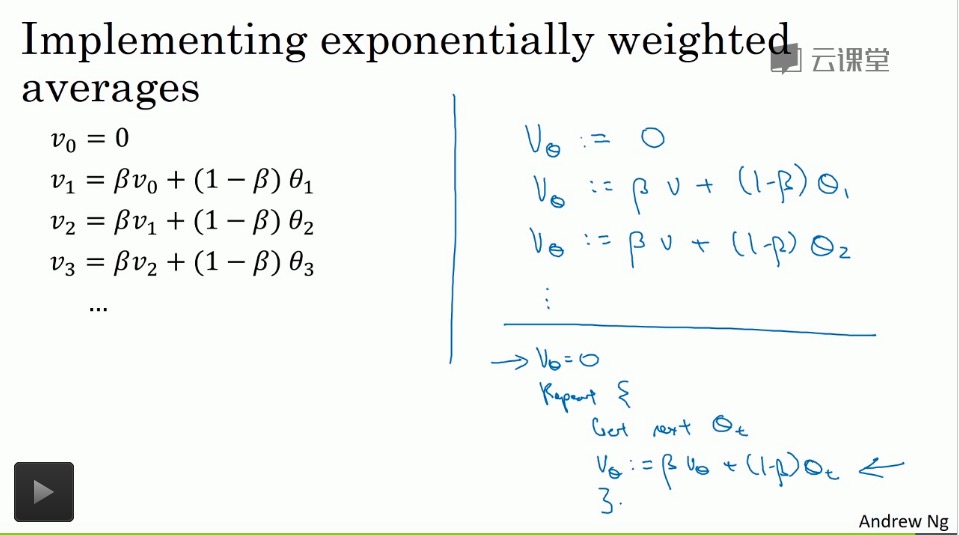 Implementing exponentially weighted
averages
云课堂
v₀ = 0
v₁ = βv₀ + (1 − β) θ₁
v₂ = βv₁ + (1 − β) θ₂
v₃ = βv₂ + (1 − β) θ₃
...
V_θ := 0
V_θ := β v + (1-β) θ₁
V_θ := β v + (1-β) θ₂
⋮
→ V_θ = 0
Repeat {
Get next θ_t
V_θ := β V_θ + (1-β) θ_t ←
}
Andrew Ng